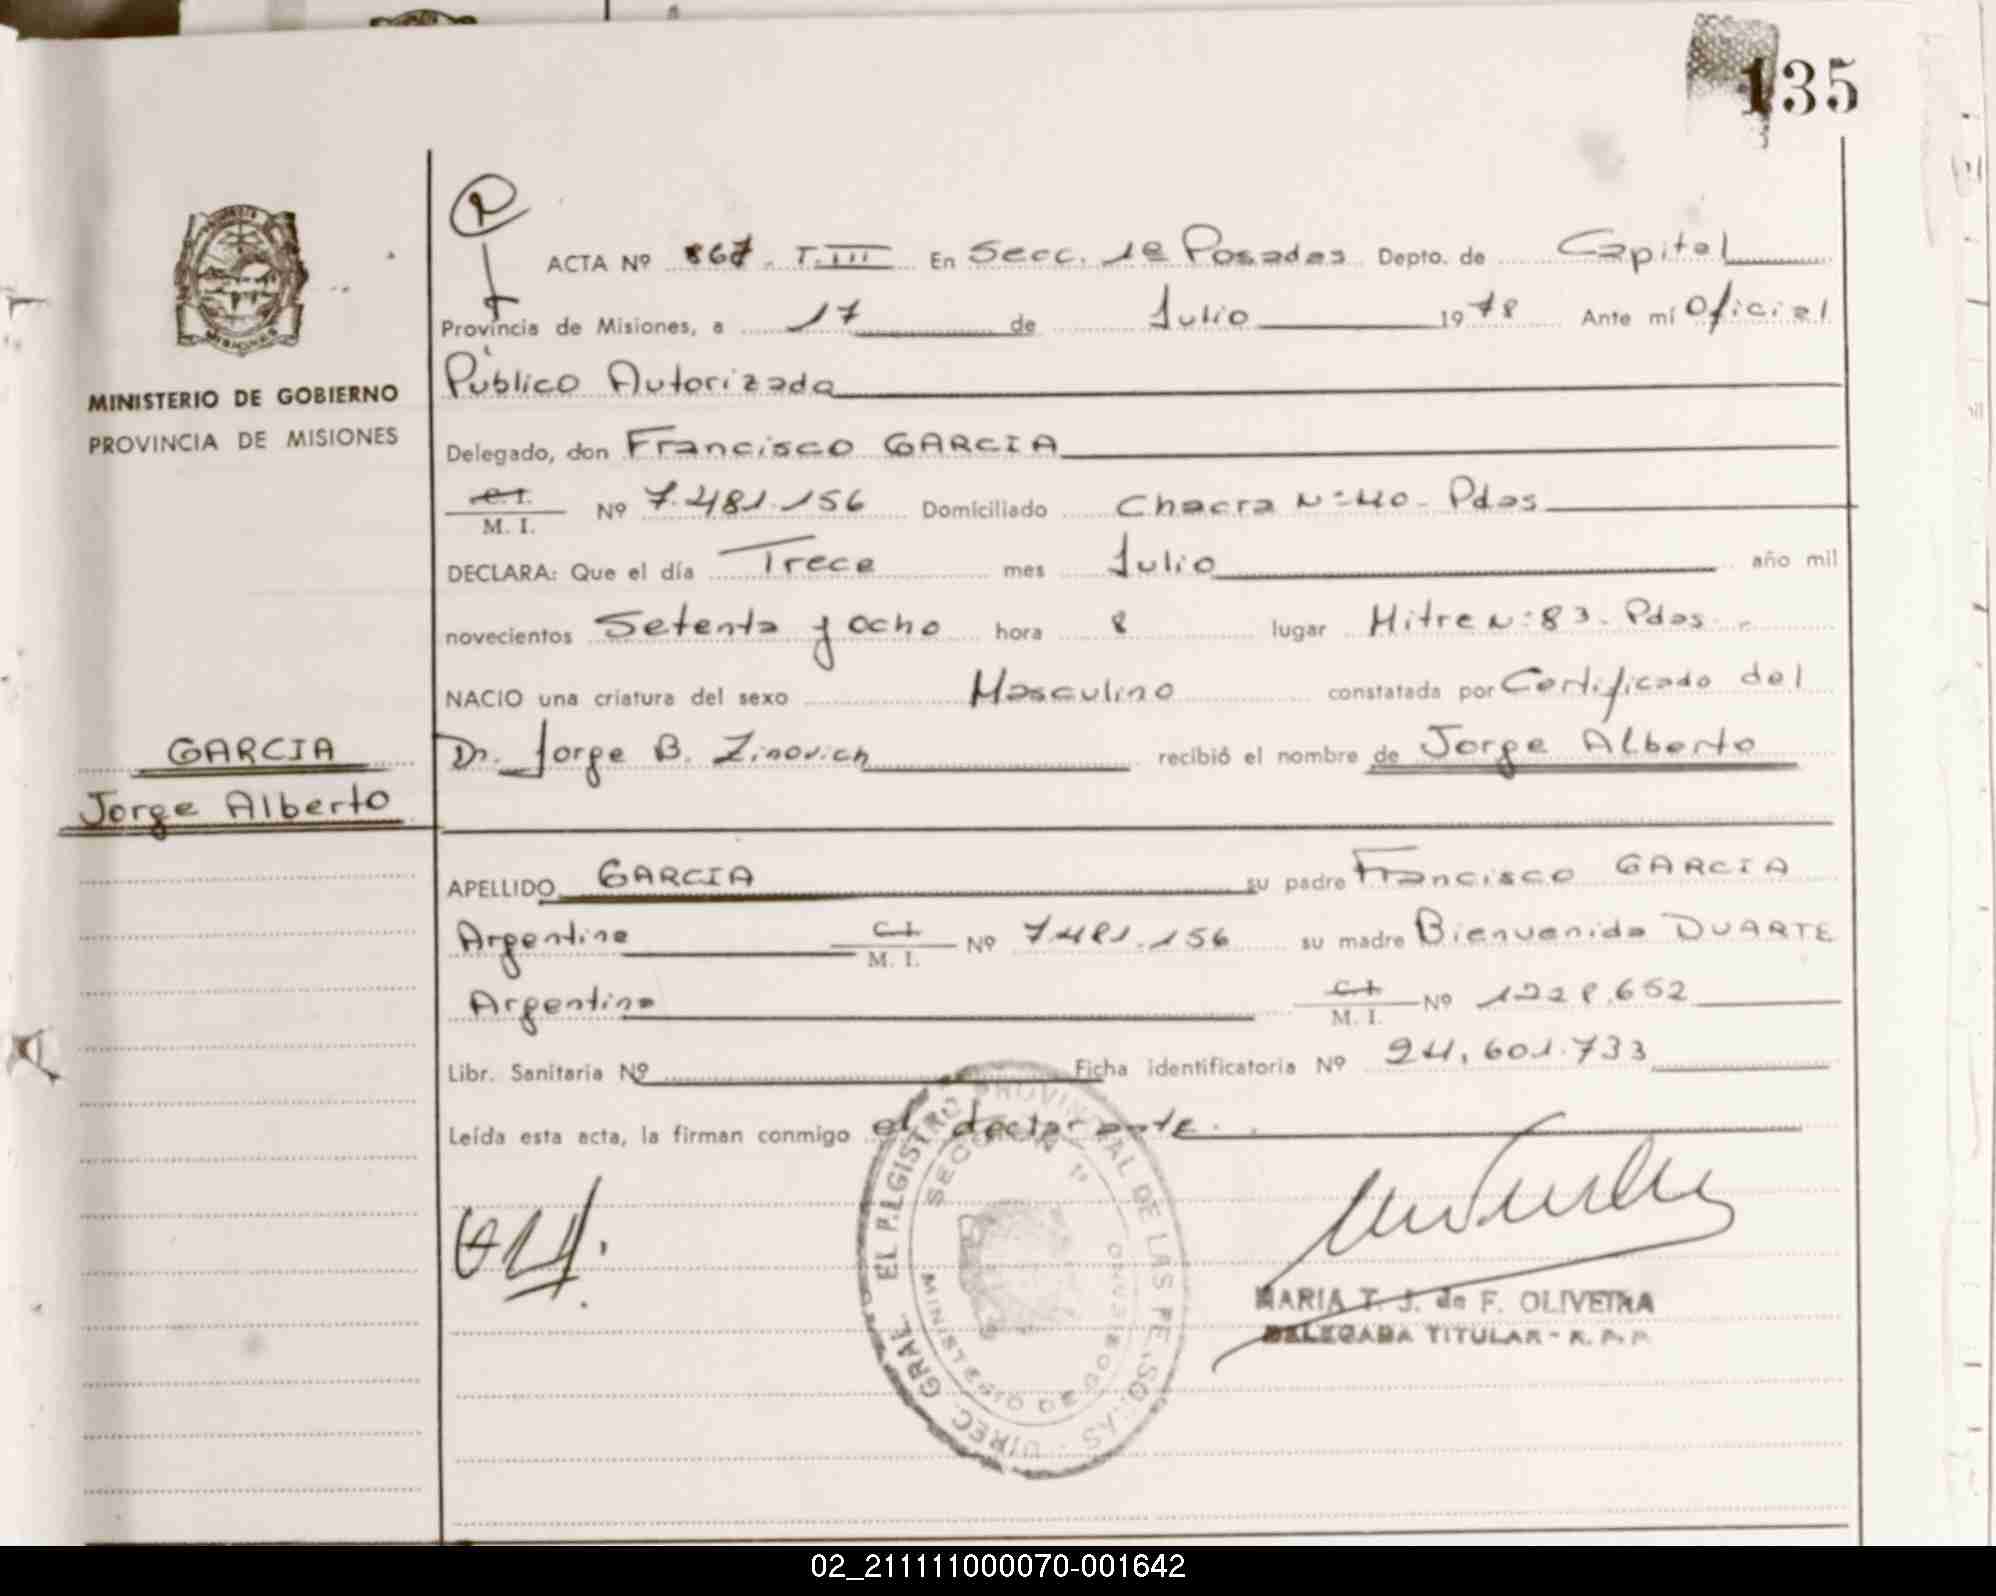 135
ACTA Nº 867. T.III En Secc. 1ª Posadas Depto. de Capital
Provincia de Misiones, a 17 de Julio 1978 Ante mí Oficial
Público Autorizada
MINISTERIO DE GOBIERNO
PROVINCIA DE MISIONES
Delegado, don Francisco GARCIA
C.I. M. I. Nº 7.481.156 Domiciliado Chacra Nº 40. Pdas
DECLARA: Que el día Trece mes Julio año mil
novecientos Setenta y ocho hora 8 lugar Mitre Nº 83. Pdas.
NACIO una criatura del sexo Masculino constatada por Certificado del
GARCIA
Jorge Alberto
Dr. Jorge B. Zinovich recibió el nombre de Jorge Alberto
APELLIDO GARCIA su padre Francisco GARCIA
Argentino C.I. M. I. Nº 7.481.156 su madre Bienvenida DUARTE
Argentina C.I. M. I. Nº 1228.652
Libr. Sanitaria Nº Ficha identificatoria Nº 24.601.733
Leída esta acta, la firman conmigo el declarante.
DIREC. GRAL. DEL REGISTRO PROVINCIAL DE LAS PERSONAS
SECCION 1ª
MINISTERIO DE GOBIERNO
MARIA T. J. de F. OLIVEIRA
DELEGADA TITULAR - R. P. P.
02_211111000070-001642